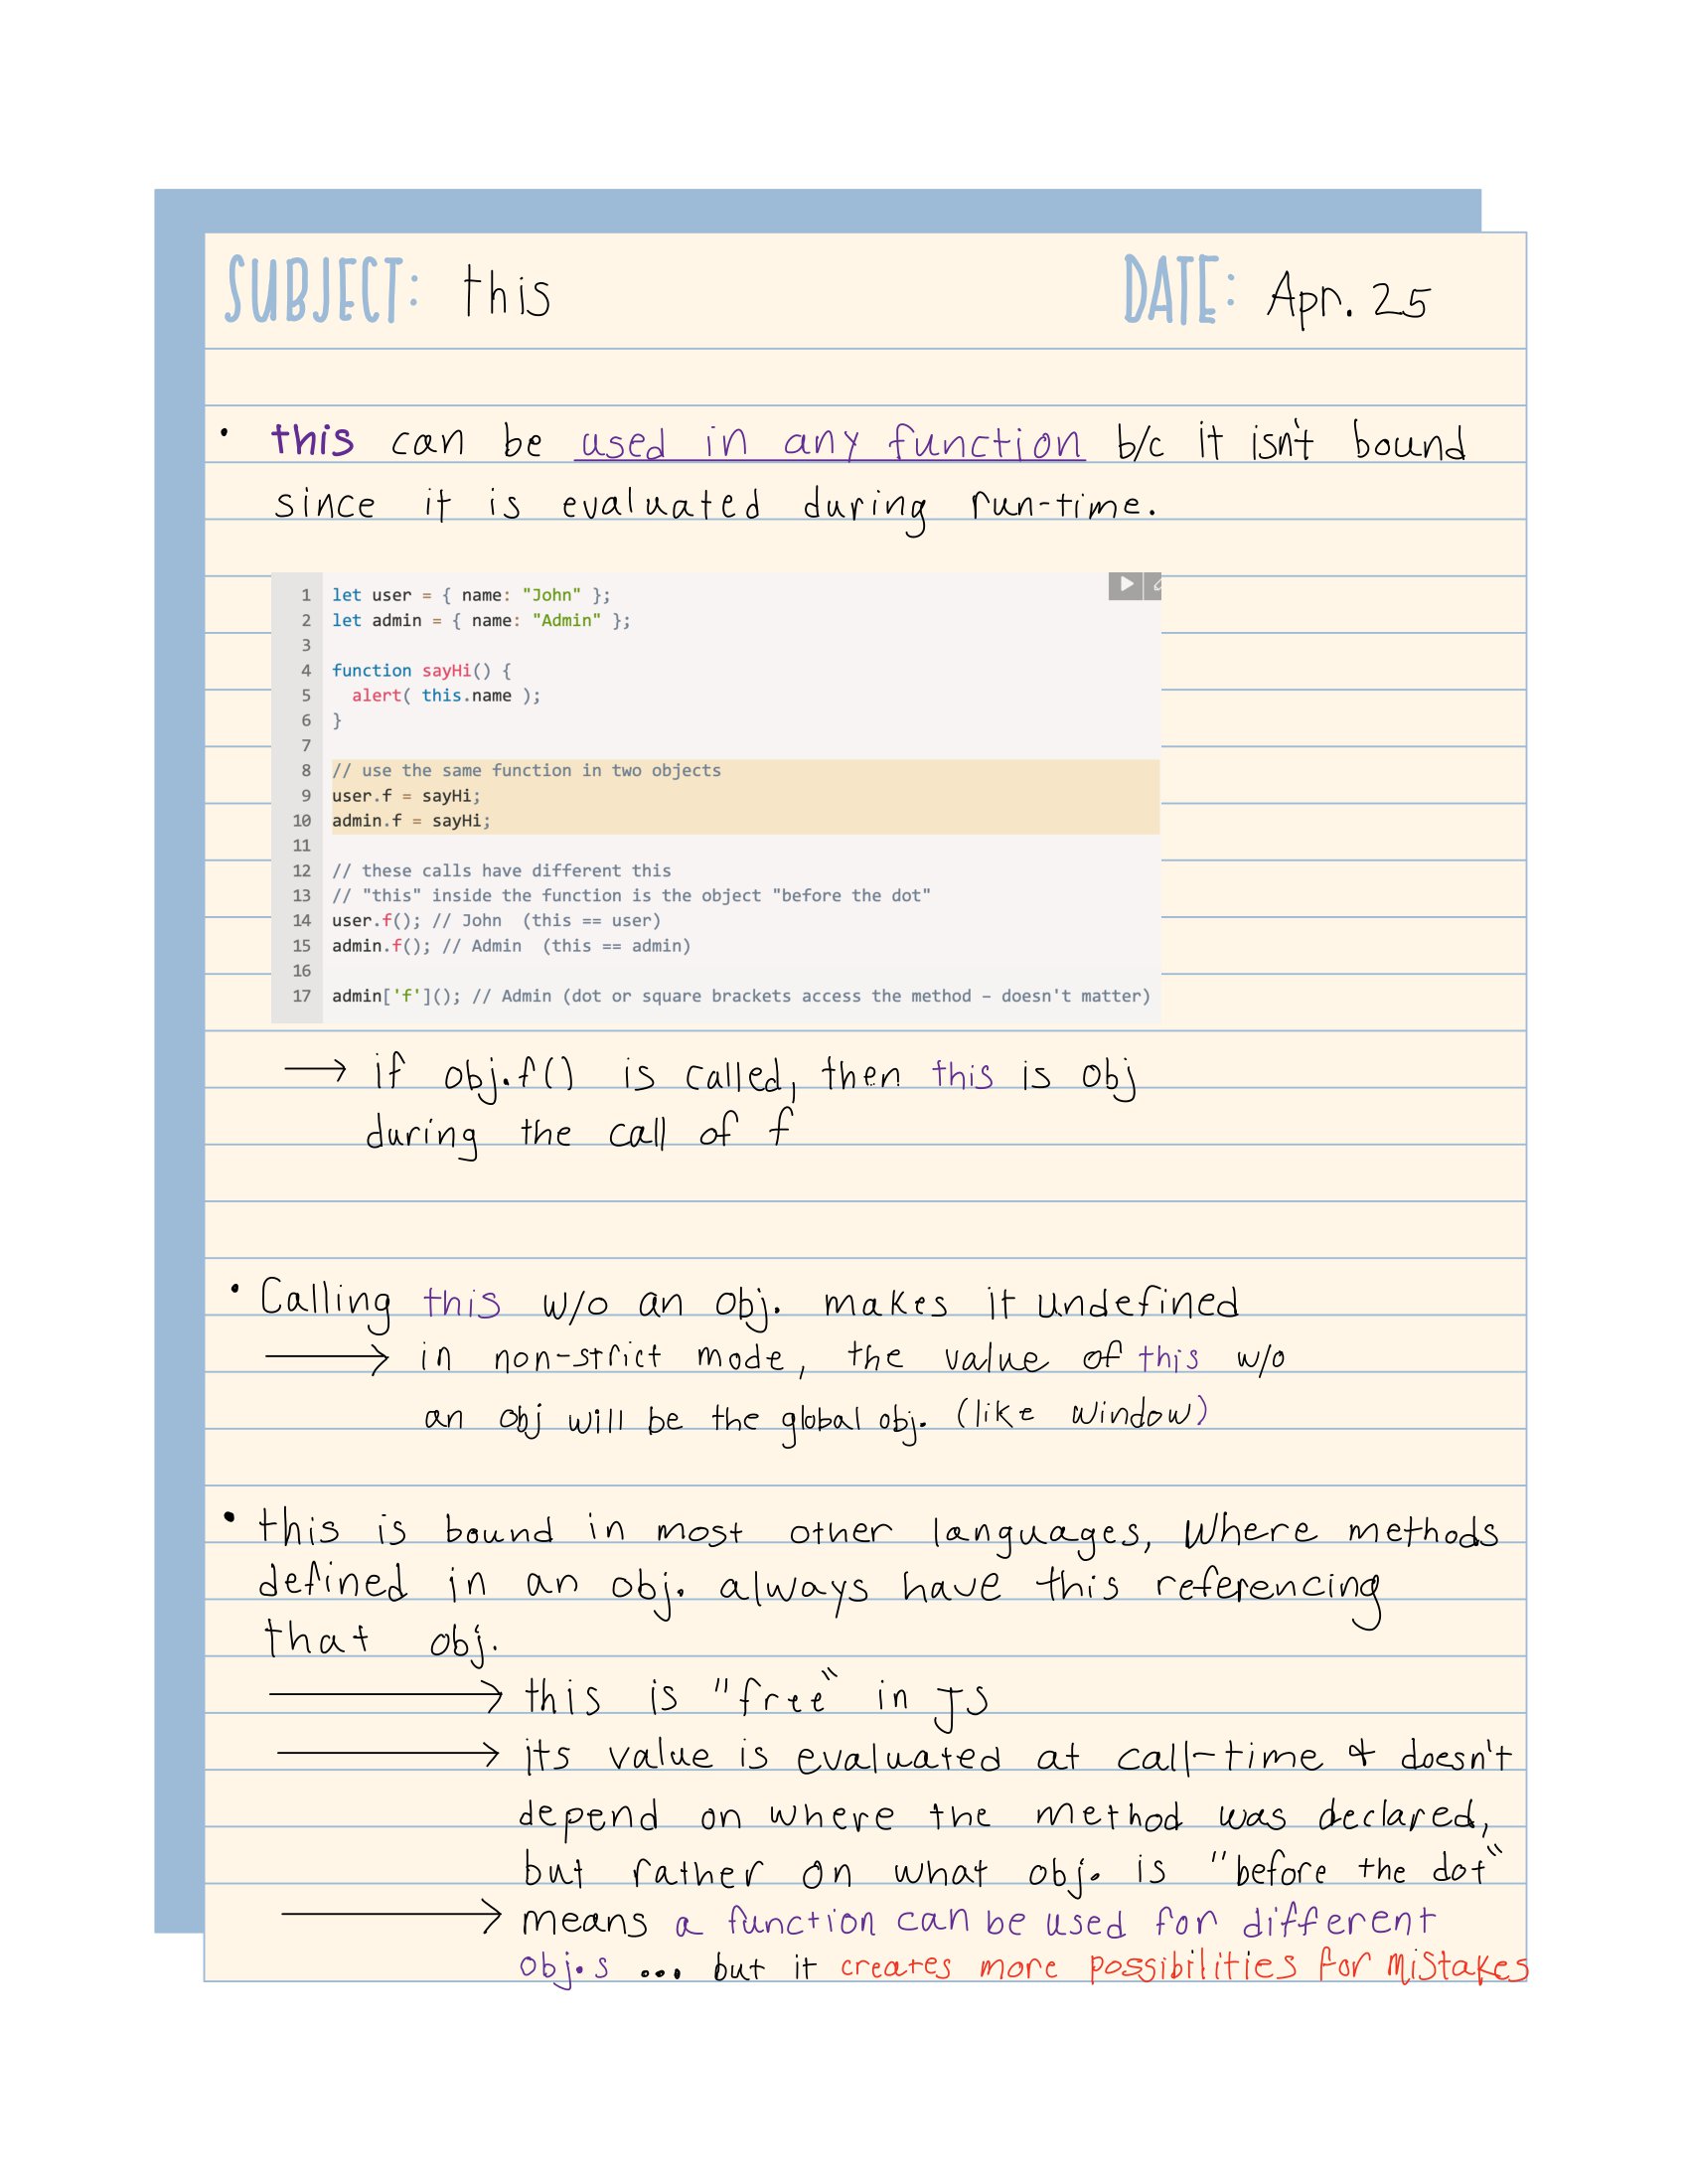 SUBJECT: this DATE: Apr. 25
• this can be used in any function b/c it isn't bound
since it is evaluated during run-time.
1 let user = { name: "John" };
2 let admin = { name: "Admin" };
3
4 function sayHi() {
5   alert( this.name );
6 }
7
8 // use the same function in two objects
9 user.f = sayHi;
10 admin.f = sayHi;
11
12 // these calls have different this
13 // "this" inside the function is the object "before the dot"
14 user.f(); // John  (this == user)
15 admin.f(); // Admin  (this == admin)
16
17 admin['f'](); // Admin (dot or square brackets access the method – doesn't matter)
→ if obj.f() is called, then this is obj
during the call of f
• Calling this w/o an obj. makes it undefined
→ in non-strict mode, the value of this w/o
an obj will be the global obj. (like window)
• this is bound in most other languages, where methods
defined in an obj. always have this referencing
that obj.
→ this is "free" in JS
→ its value is evaluated at call-time & doesn't
depend on where the method was declared,
but rather on what obj. is "before the dot"
→ means a function can be used for different
obj.s ... but it creates more possibilities for mistakes